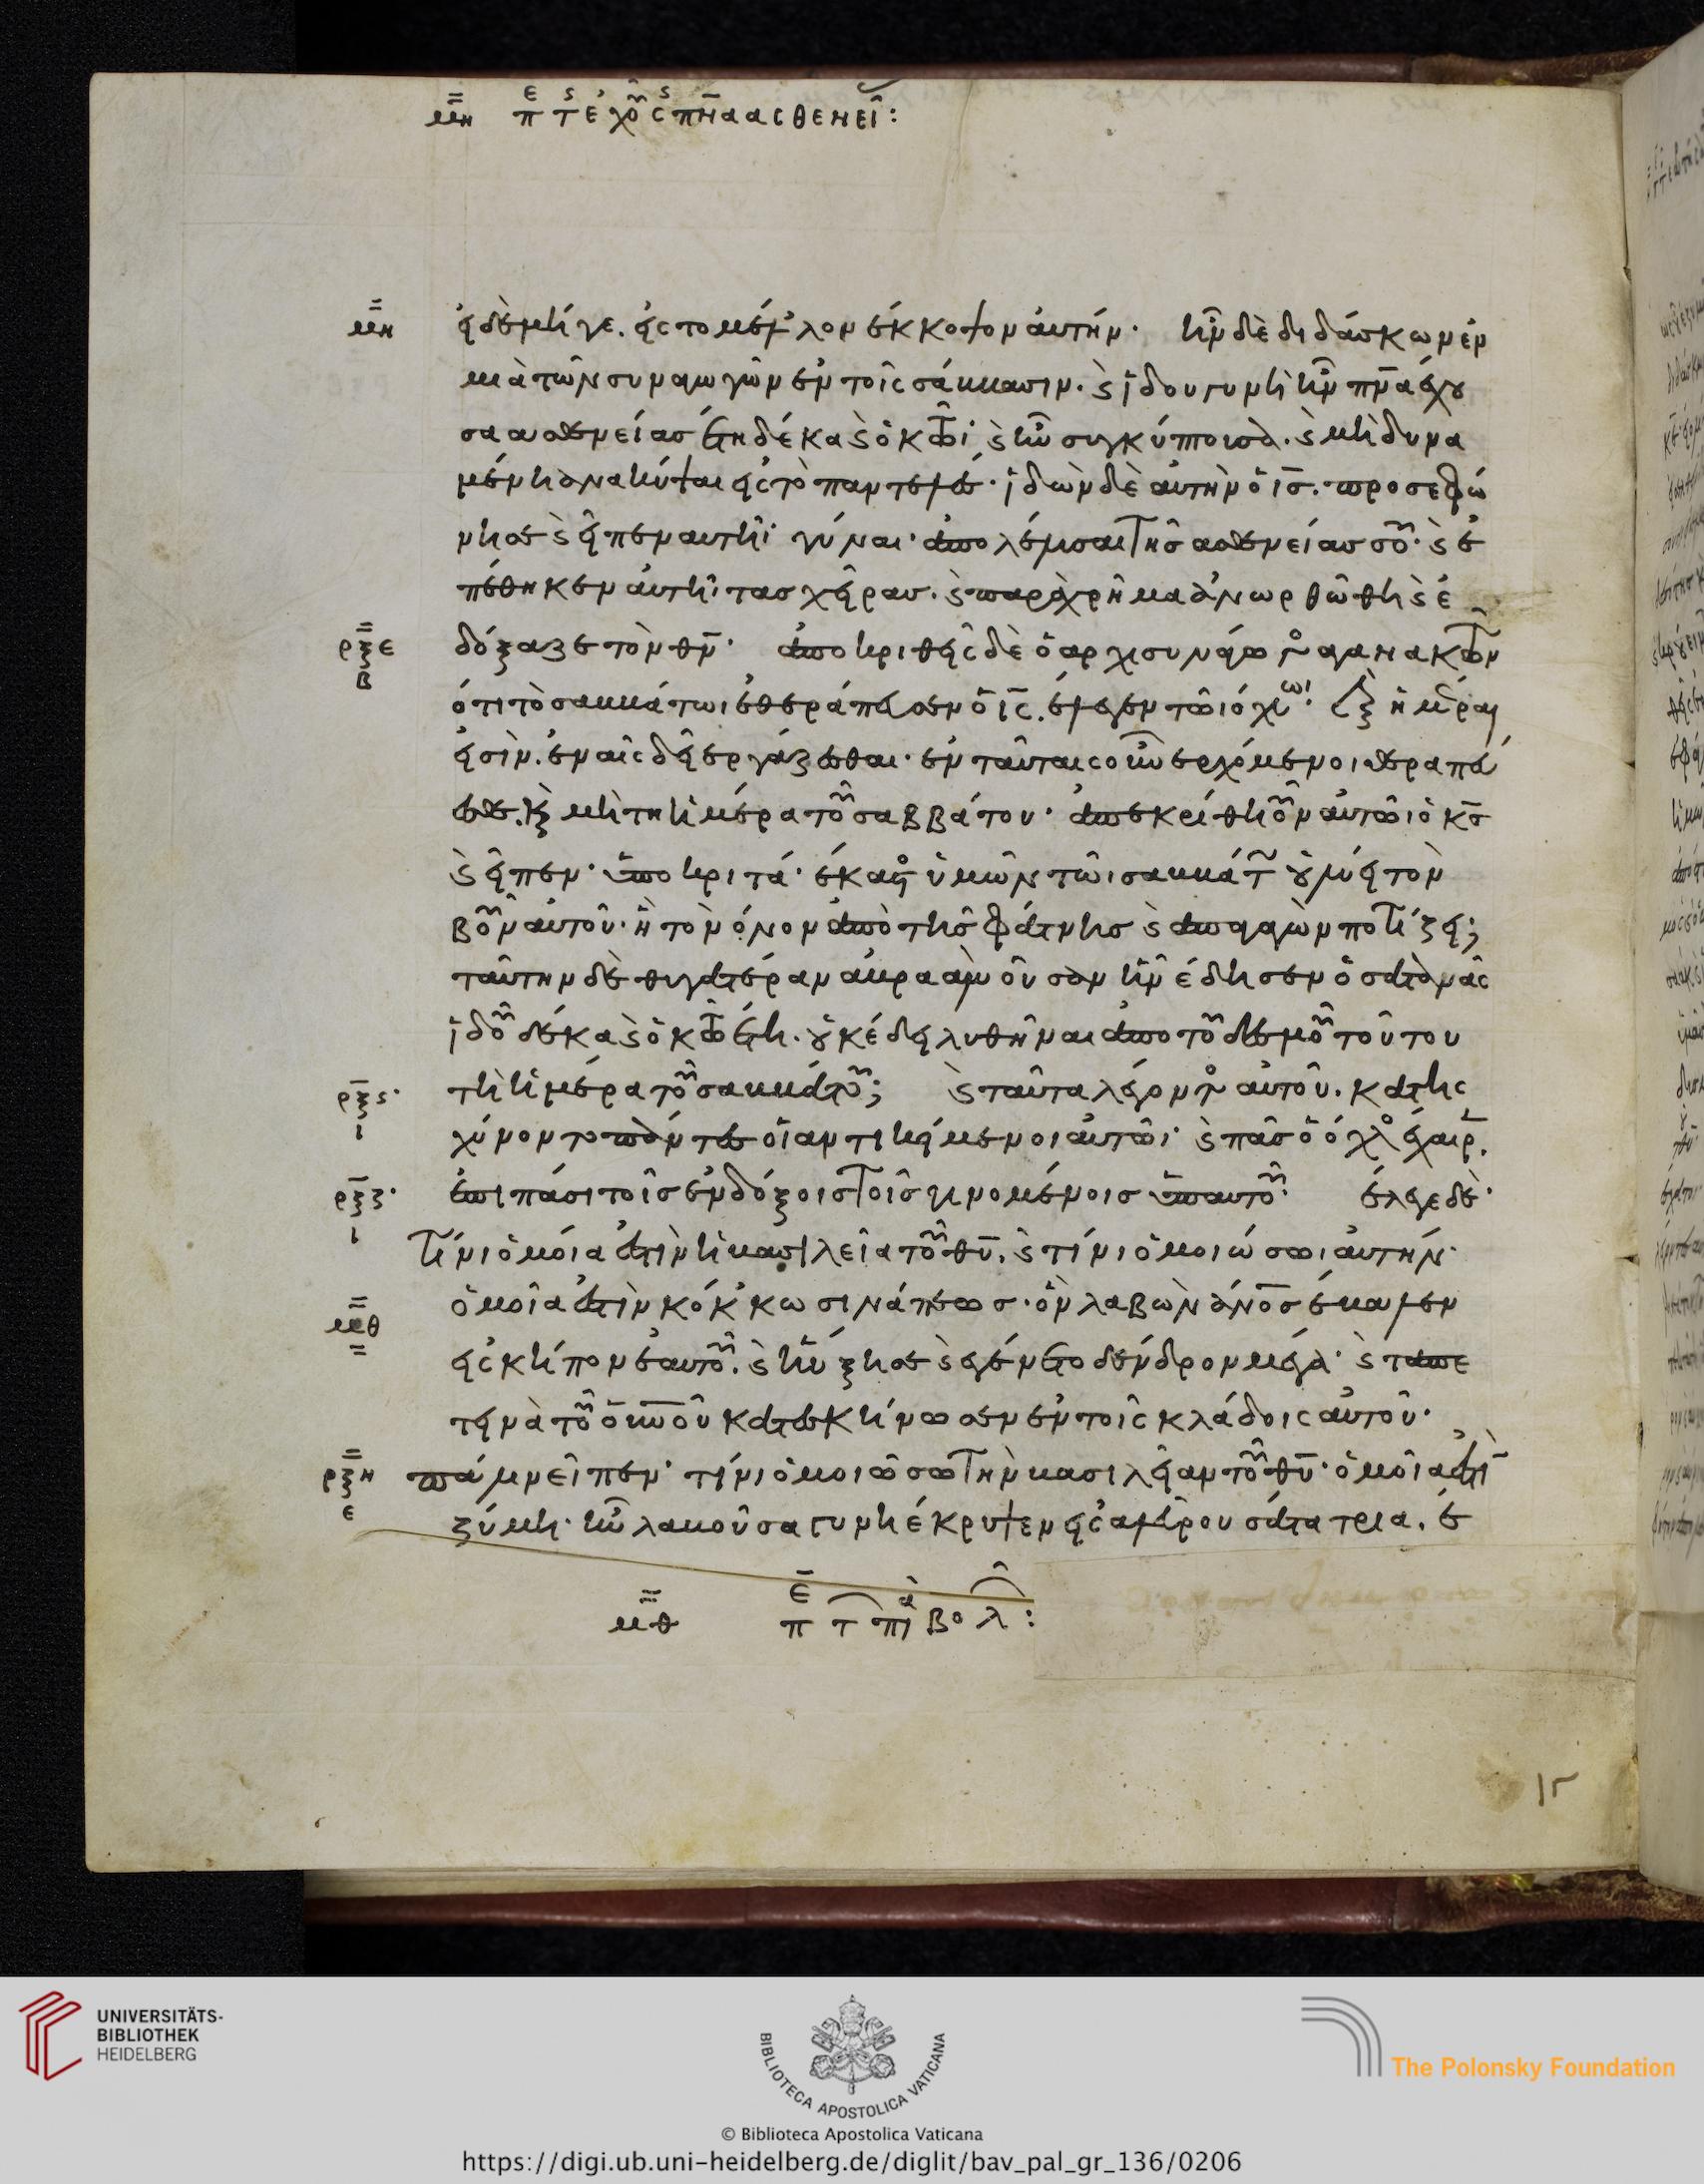 μη π τ εχου ς πνα ασθενει:
μη εἰ δὲ μήγε. εἰς το μέλλον ἐκκοψον ἀυτήν· ἦν δὲ διδάσκων ἐν
μιὰ τῶν συναγωγῶν ἐν τοῖς σάββασιν. ϛ ἰδου γυνὴ ἦν πνα ἔχου
σα ασθενείασ ἔτη δέκα ϛ ὀκτώ· ϛ ἦν συγκύπτουσα. ϛ μὴ δυνα
μένη ἀνακύψαι εἰς τὸ παντελέσ· ἰδὼν δὲ ἀυτὴν ὁ ις. προσεφώ
νησε ϛ εἶπεν αυτῆι· γύναι· ἀπολέλυσαι τῆσ ασθενείασ σου· ϛ ἐ
πέθηκεν ἀυτῆι τασ χεῖρασ. ϛ παραχρῆμα ἀνωρθώθη ϛ ἐ
ρξε β δόξαζε τὸν θν· ἀποκριθεὶς δὲ ὁ αρχισυνάγωγος αγανακτῶν
ότι τὸ σαββάτωι ἐθεράπευσεν ὁ ις. έλεγεν τῶι όχλωι· ἓξ ἡμέραι
εἰσὶν. ἐν αἷς δεῖ εργάζεσθαι· ἐν ταύταις οὖν ερχόμενοι θεραπεύ
εσθε. ϗ μὴ τη ἡμέρα του σαββάτου· ἀπεκρίθη οὖν αυτῶι ὁ κς
ϛ εἶπεν· ὑποκριτά· έκαστος ὑμῶν τῶι σαββάτω οὐ λύει τὸν
βοῦν αὐτοῦ· ἢ τὸν όνον ἀπὸ τῆσ φάτνησ ϛ ἀπαγαγὼν ποτίζει;
ταύτην δὲ θυγατέραν αβρααμ οὖσαν ἣν έδησεν ὁ σατανᾶς
ἰδοῦ δέκα ϛ ὀκτὼ έτη. οὐκ έδει λυθῆναι ἀπο τοῦ δεσμοῦ τούτου
ρξϛ ι τῆ ἡμέρα τοῦ σαββάτου; ϛ ταῦτα λέγοντος αὐτοῦ. κατης
χύνοντο πάντεσ οἱ αντικείμενοι αὐτῶι· ϛ πᾶσ ὁ όχλος έχαιρεν.
ρξζ ι ἐπι πάσι τοῖσ ἐνδόξοισ τοῖσ γινομένοισ ὑπ αυτοῦ· έλεγε δὲ·
τίνι ὁμοία ἐστὶν ἡ βασιλεῖα τοῦ θυ. ϛ τίνι ὁμοιώσωι ἀυτήν·
μθ ὁμοῖα ἐστὶν κόκκω σινάπεωσ· ὃν λαβὼν ανοσ έβαλεν
εἰς κήπον ἑαυτοῦ. ϛ ηὔξησε ϛ εγένετο δένδρον μέγα· ϛ τα πε
τεινὰ τοῦ ουνου κατεσκήνωσεν ἐν τοῖς κλάδοις αὐτοῦ·
ρξη ε πάλιν εἶπεν· τίνι ὁμοιῶσω τὴν βασιλείαν τοῦ θυ· ὁμοῖα ἐστὶ
ζύμη· ἣν λαβοῦσα γυνὴ έκρυψεν εἰς αλεύρου σάτα τρια. έ
μθ π τ π βολ:
UNIVERSITÄTS-
BIBLIOTHEK
HEIDELBERG
BIBLIOTECA APOSTOLICA VATICANA
The Polonsky Foundation
© Biblioteca Apostolica Vaticana
https://digi.ub.uni-heidelberg.de/diglit/bav_pal_gr_136/0206